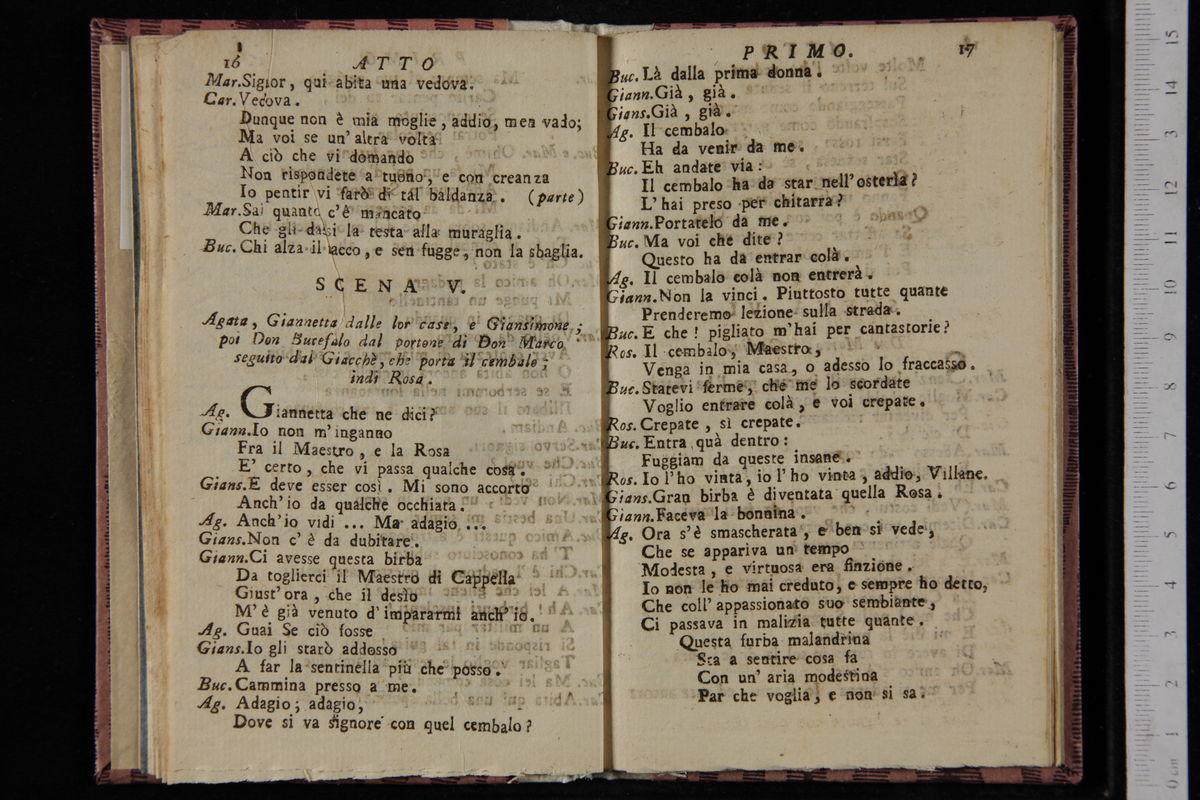 16 ATTO
Mar. Signor, qui abita una vedova.
Car. Vedova.
Dunque non è mia moglie, addio, men vado;
Ma voi se un' altra volta
A ciò che vi domando
Non rispondete a tuono, e con creanza
Io pentir vi farò di tal baldanza. (parte)
Mar. Sai quanto c'è mancato
Che gli dassi la testa alla muraglia.
Buc. Chi alza il tacco, e sen fugge, non la sbaglia.
SCENA V.
Agata, Giannetta dalle lor case, e Giansimone;
poi Don Bucefalo dal portone di Don Marco
seguito dal Giacchè, che porta il cembalo;
indi Rosa.
Ag. Giannetta che ne dici?
Giann. Io non m'inganno
Fra il Maestro, e la Rosa
E' certo, che vi passa qualche cosa.
Gians. E deve esser così. Mi sono accorto
Anch'io da qualche occhiata.
Ag. Anch'io vidi ... Ma adagio ...
Gians. Non c' è da dubitare.
Giann. Ci avesse questa birba
Da toglierci il Maestro di Cappella
Giust' ora, che il desìo
M' è già venuto d' impararmi anch' io.
Ag. Guai Se ciò fosse
Gians. Io gli starò addosso
A far la sentinella più che posso.
Buc. Cammina presso a me.
Ag. Adagio; adagio,
Dove si va signore con quel cembalo?
PRIMO. 17
Buc. Là dalla prima donna.
Giann. Già, già.
Gians. Già, già.
Ag. Il cembalo
Ha da venir da me.
Buc. Eh andate via:
Il cembalo ha da star nell' osteria?
L' hai preso per chitarra?
Giann. Portatelo da me.
Buc. Ma voi che dite?
Questo ha da entrar colà.
Ag. Il cembalo colà non entrerà.
Giann. Non la vinci. Piuttosto tutte quante
Prenderemo lezione sulla strada.
Buc. E che! pigliato m'hai per cantastorie?
Ros. Il cembalo, Maestro,
Venga in mia casa, o adesso lo fraccasso.
Buc. Statevi ferme, che me lo scordate
Voglio entrare colà, e voi crepate.
Ros. Crepate, sì crepate.
Buc. Entra quà dentro:
Fuggiam da queste insane.
Ros. Io l' ho vinta, io l' ho vinta, addio, Villane.
Gians. Gran birba è diventata quella Rosa.
Giann. Faceva la bonnina.
Ag. Ora s'è smascherata, e ben si vede,
Che se appariva un tempo
Modesta, e virtuosa era finzione.
Io non le ho mai creduto, e sempre ho detto,
Che coll' appassionato suo sembiante,
Ci passava in malizia tutte quante.
Questa furba malandrina
Sta a sentire cosa fa
Con un' aria modestina
Par che voglia, e non si sa.